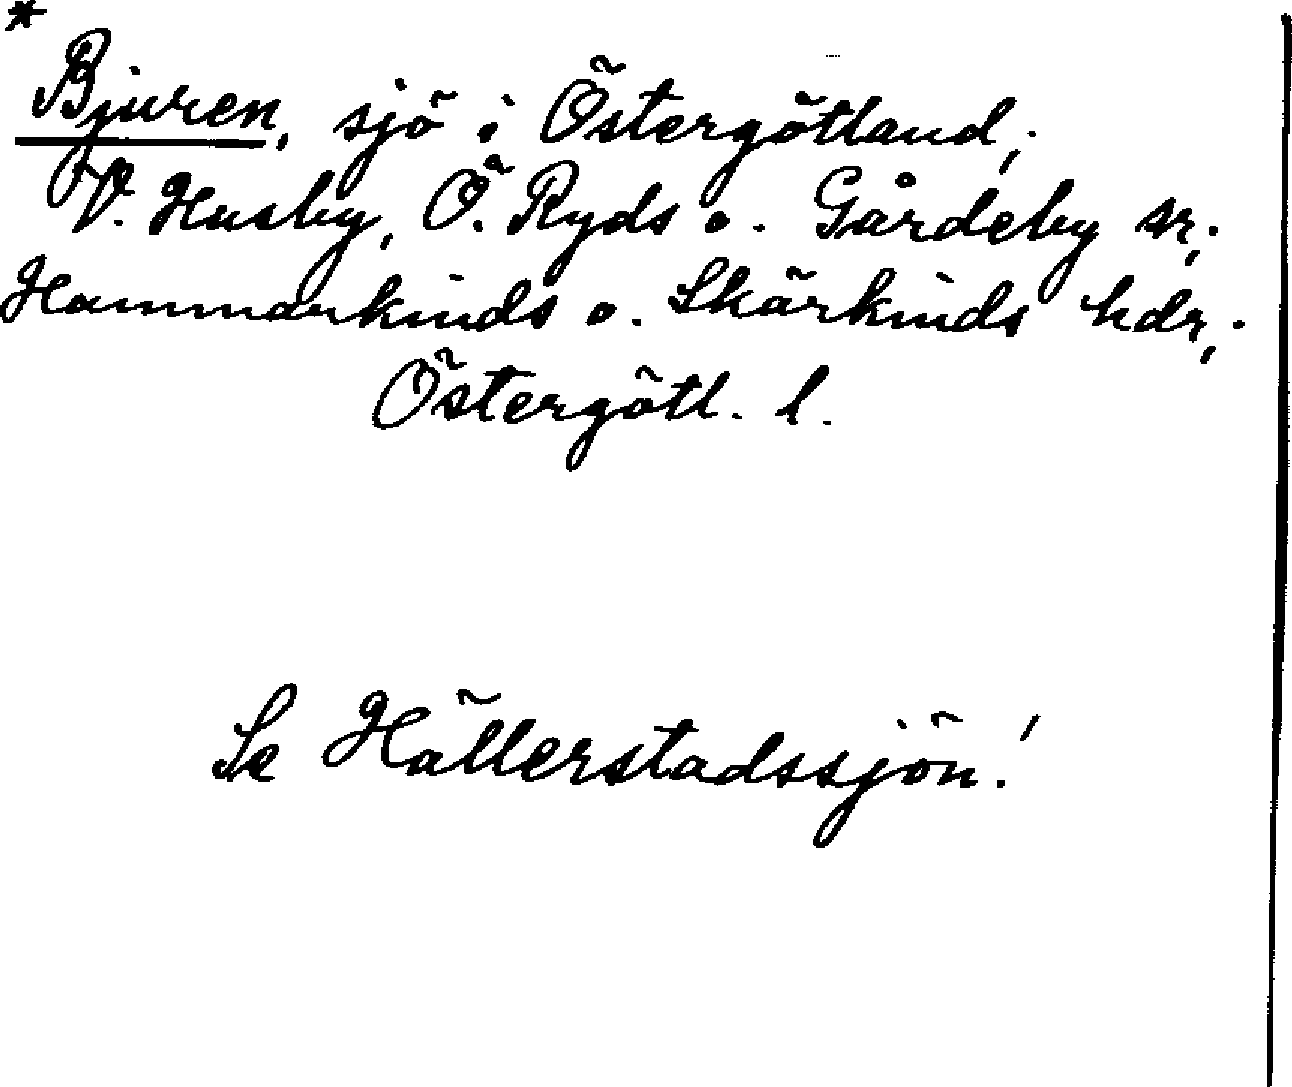 *
Bjuren, sjö i Östergötland;
V. Husby, Ö. Ryds o. Gårdeby sr;
Hammarkinds o. Skärkinds hdr;
Östergötl. l.
Se Hällerstadssjön!